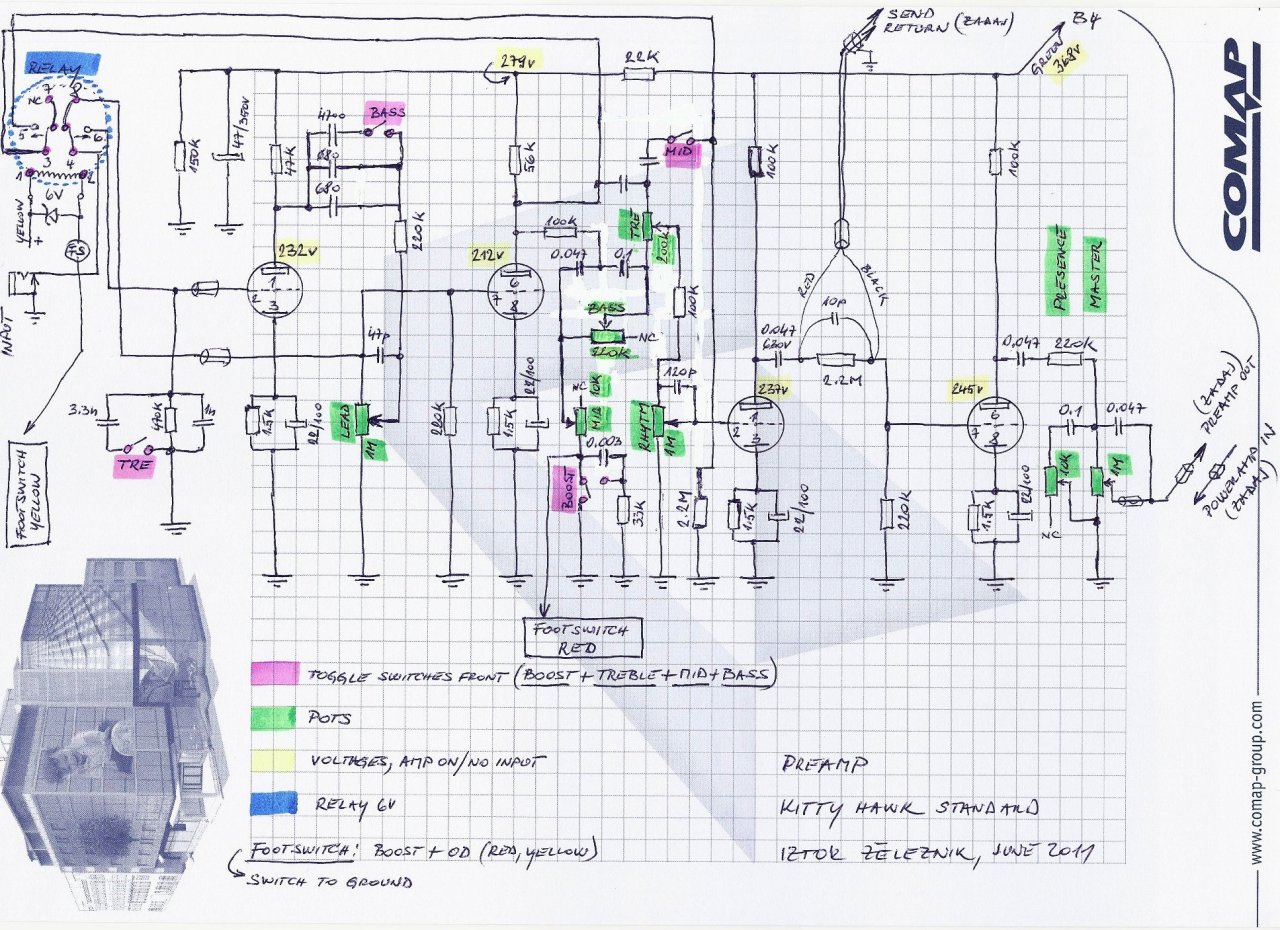 SEND
RETURN (ZADAJ)
B4
GREEN
368V
RELAY
7
8
NC
5
6
3
4
1
2
6V
YELLOW
+
INPUT
FOOTSWITCH
YELLOW
279V
22K
150K
47/350V
47K
4700
BASS
680
680
220K
56K
MID
100K
100K
232V
212V
100K
TRE
200K
0.047
0.1
BASS
220K
NC
100K
RED
BLACK
10p
PRESENCE
MASTER
1
2
3
6
7
8
47p
0.047
630V
2.2M
0.047
220K
237V
245V
120p
NC
10K
MID
RHYTM
1M
LEAD
1M
3.3n
470K
1n
TRE
1.5K
22/100
220K
1.5K
22/100
0.003
BOOST
33K
2.2M
1
2
3
1.5K
22/100
220K
6
7
8
1.5K
22/100
0.1
0.047
10K
1M
NC
(ZADAJ)
PREAMP OUT
POWERAMP IN
(ZADAJ)
FOOTSWITCH
RED
TOGGLE SWITCHES FRONT (BOOST + TREBLE + MID + BASS)
POTS
VOLTAGES, AMP ON/NO INPUT
RELAY 6V
FOOTSWITCH: BOOST + OD (RED, YELLOW)
SWITCH TO GROUND
PREAMP
KITTY HAWK STANDARD
IZTOK ŽELEZNIK, JUNE 2011
COMAP
www.comap-group.com